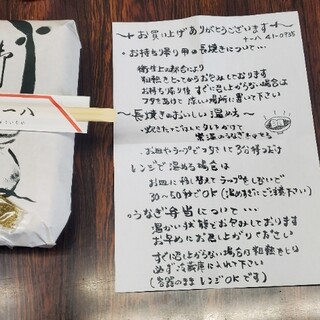 お買い上げありがとうございます
十一八 41-0735
・お持ち帰り用の長焼きについて…
衛生上の都合により
粗熱をとってからお包みしております
お持ち帰り後 すぐに召し上がらない場合は
フタをあけて 涼しい場所に置いて下さい
～長焼きのおいしい温め方～
・炊きたてごはんにタレかけて
常温のうなぎをのせる
・お皿やラップでフタをして 3分待つだけ
レンジで温める場合は
・お皿に移し替えてラップをしないで
30～50秒でOK (温めすぎにご注意下さい)
・うなぎ弁当について…
温かい状態でお包みしております
お早めにお召し上がりください
すぐに召し上がらない場合は粗熱をとり
必ず冷蔵庫に入れて下さい
(容器のまま レンジOKです)
十一八